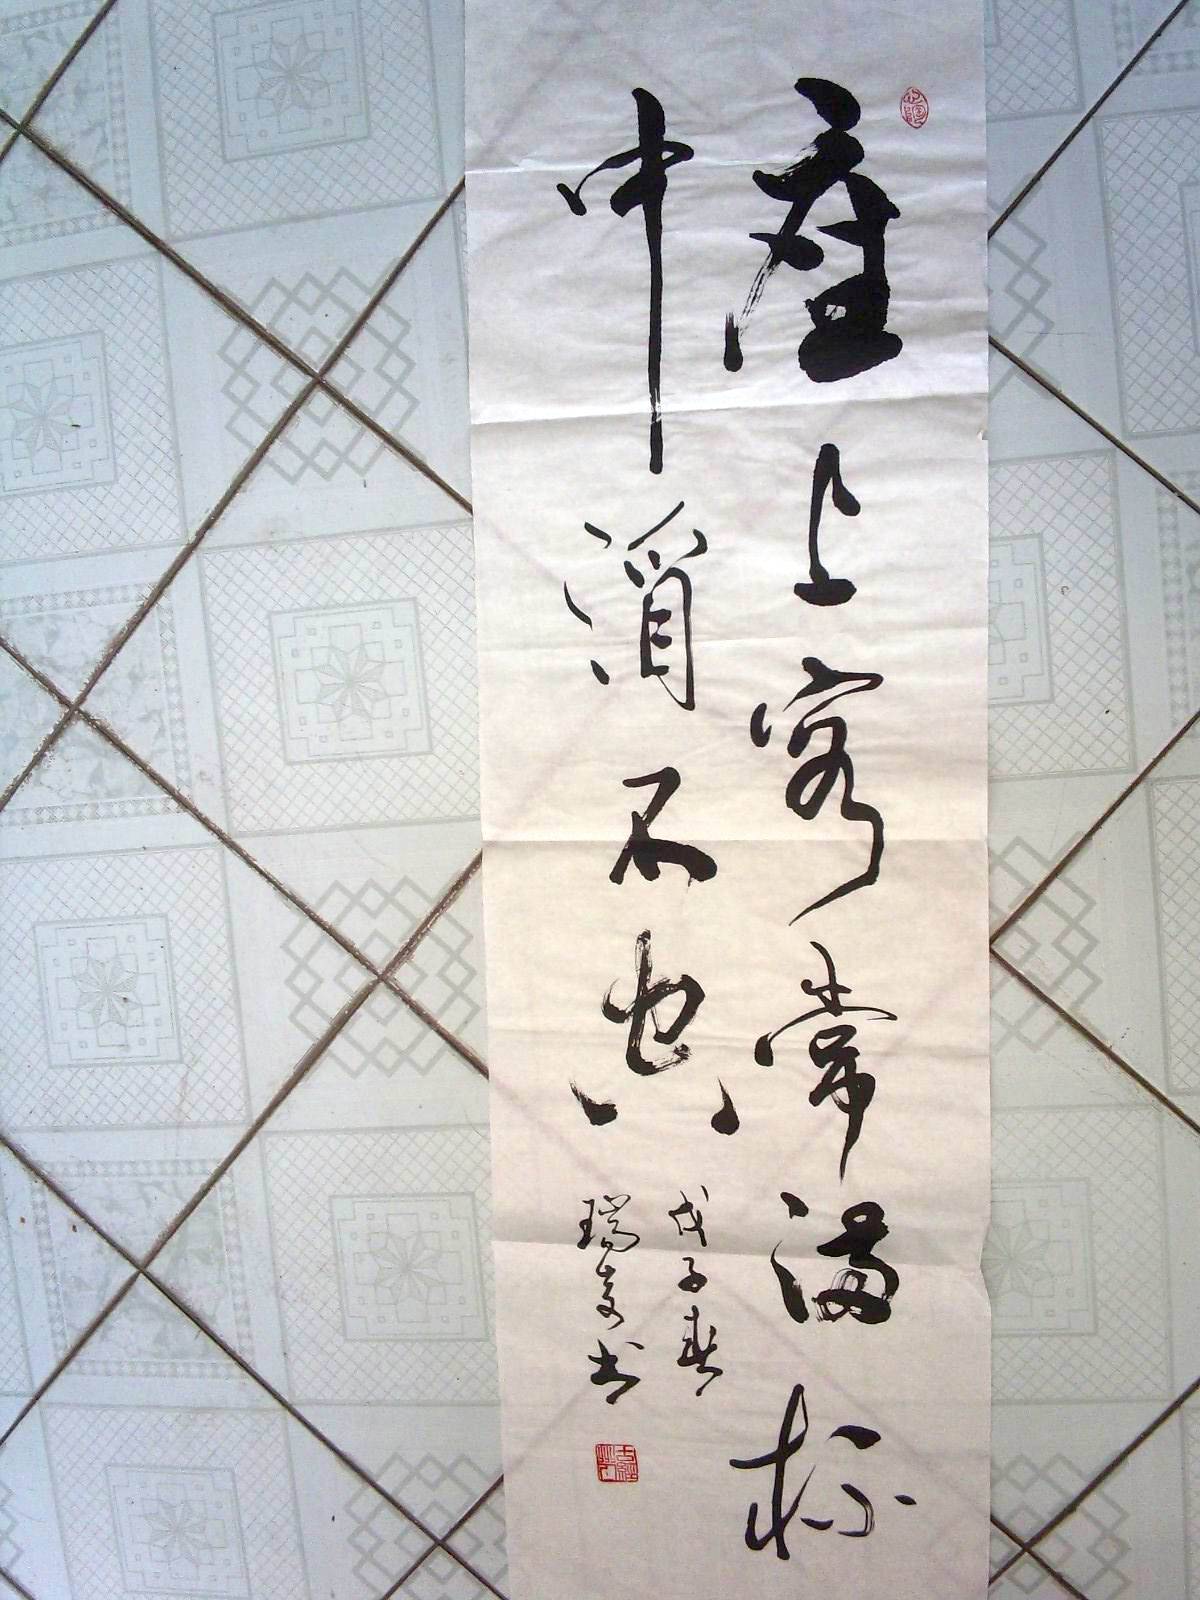 座上客常满杯
中酒不空
戊子春
瑞文书